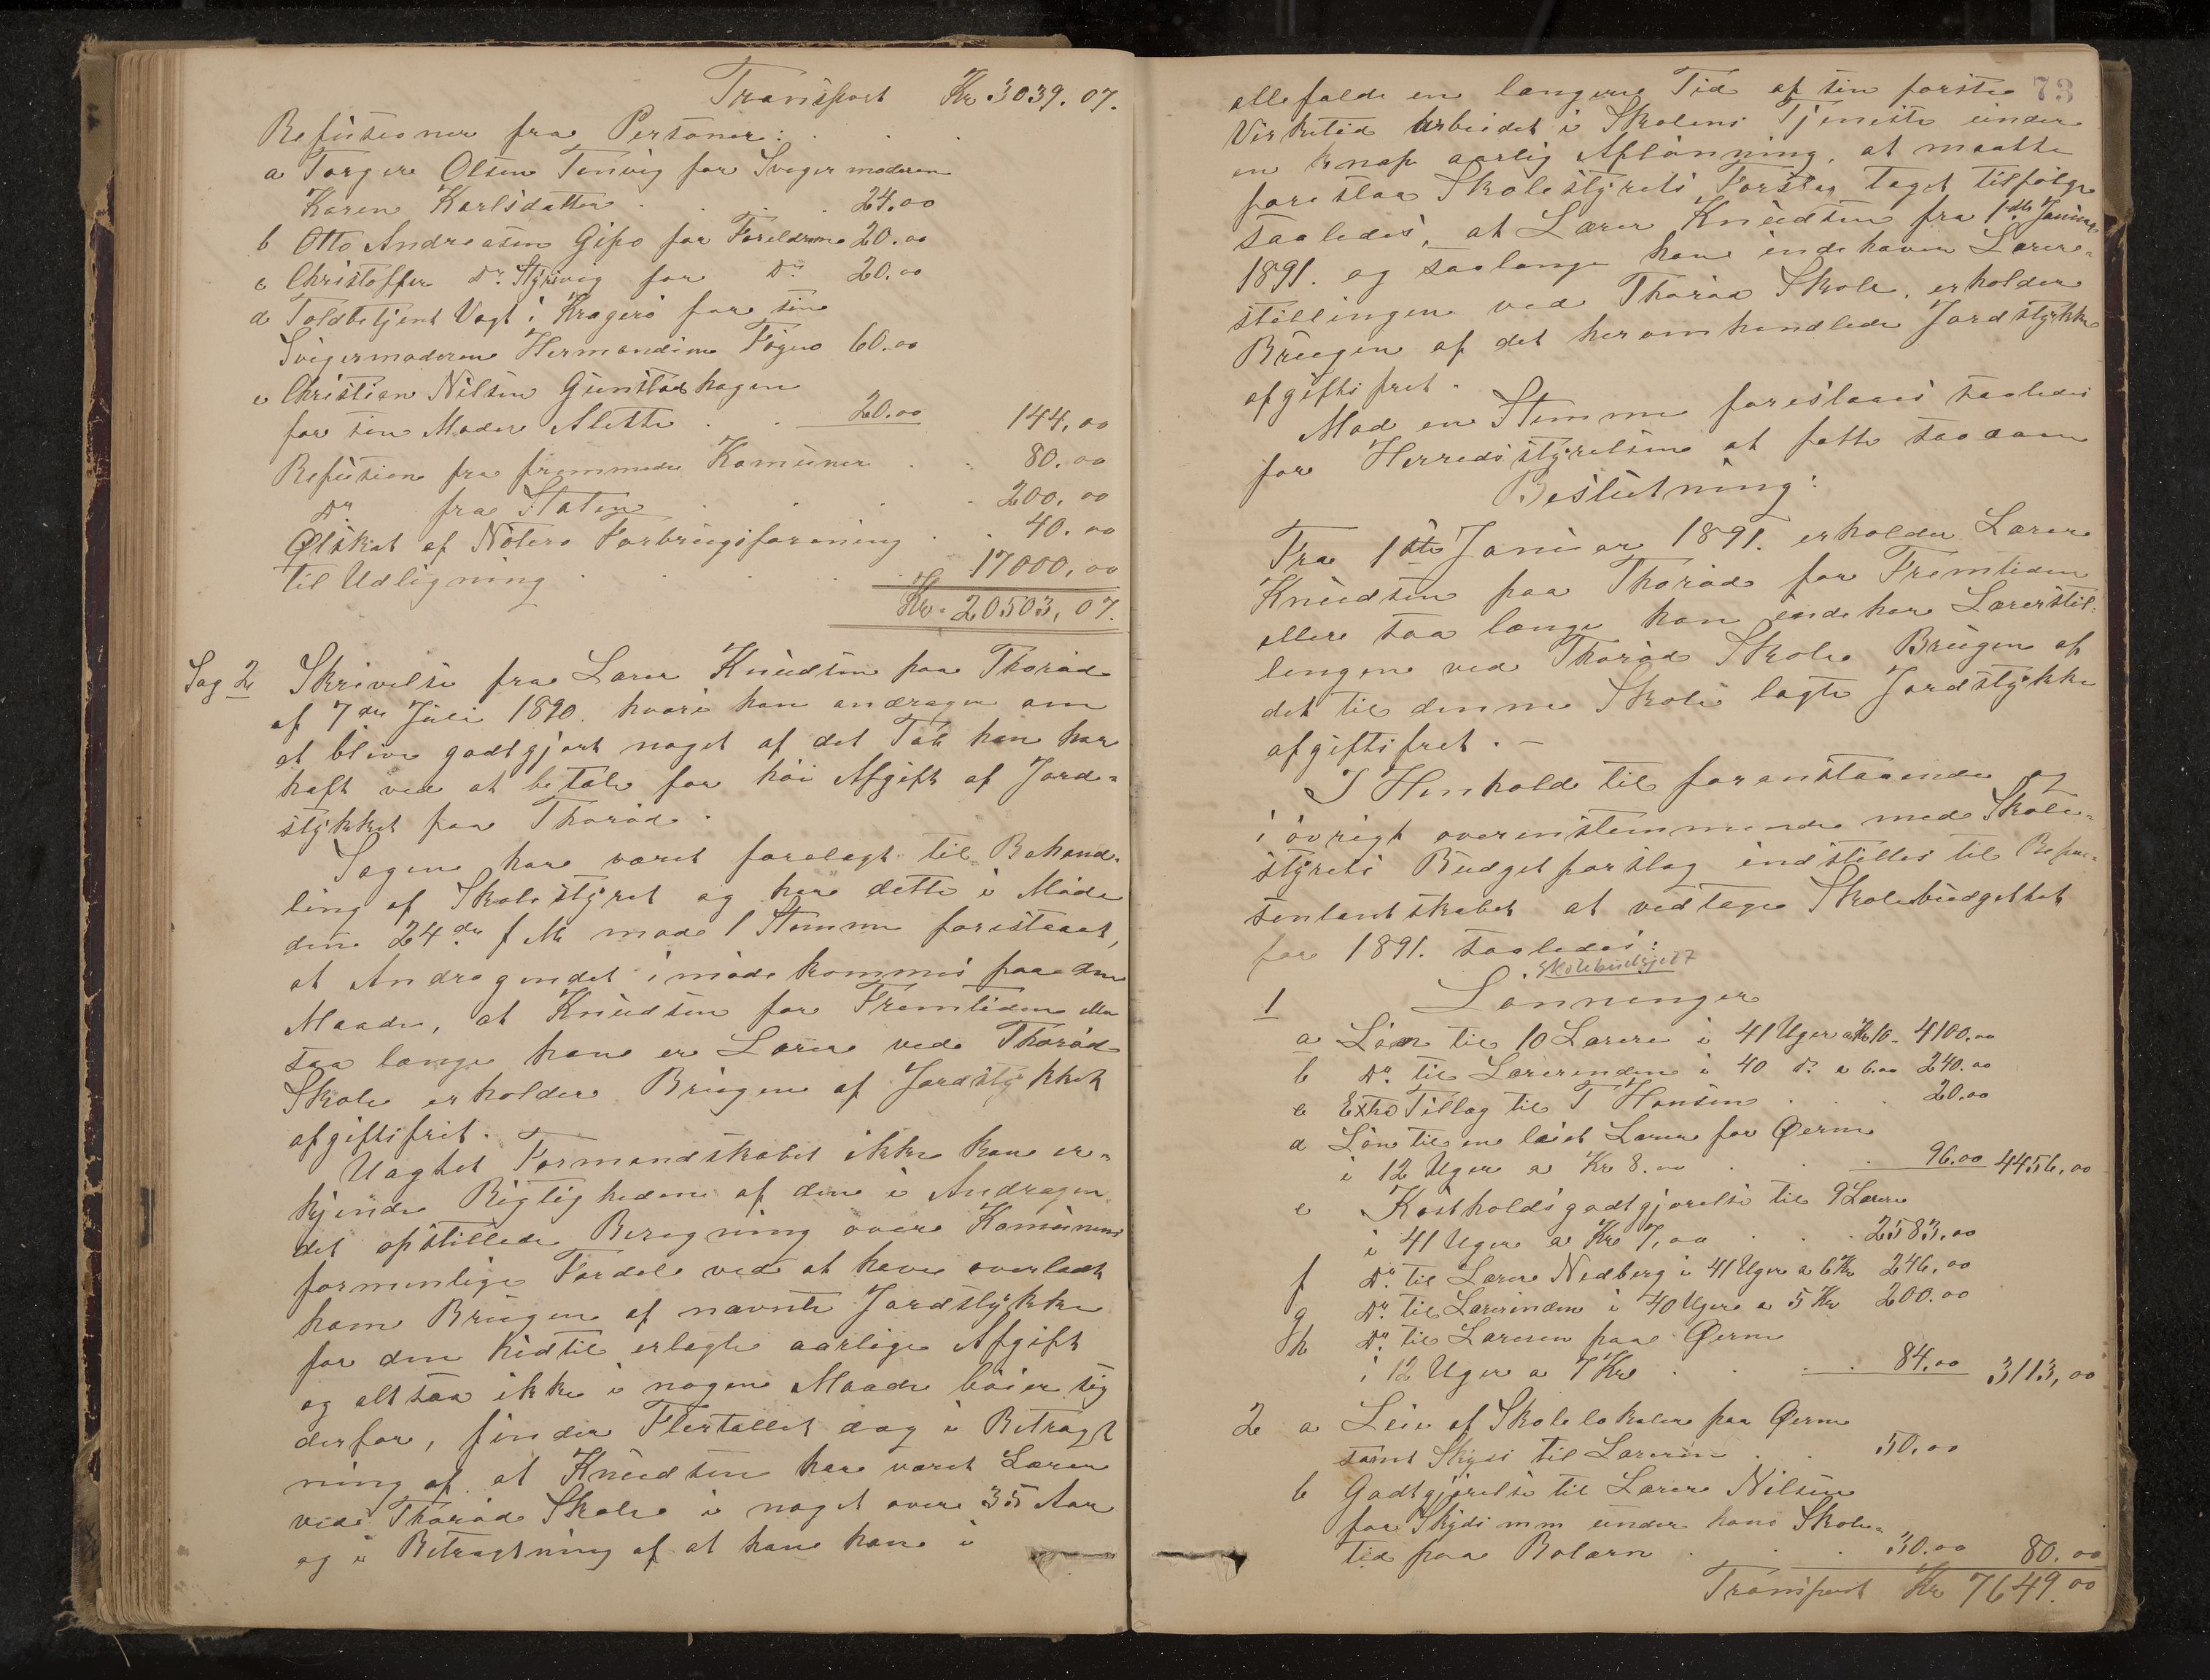 Transport Kr 3039.07.
Refusioner fra Personer: . . .
a Torger Olsen Tenvig for Svigermoderen
Karen Karlsdatter . . . . 24.00
b Otto Andreasen Gipø for Foreldrene 20.00
c Christoffer Do. Styrsvig for Do. 20.00
d Toldbetjent Vogt i Kragerø for sin
Svigermoderen Hermandine Føyen 60.00
e Christian Nilsen Gunstadhagen
for sin Moder Alette . . 20.00 144,00
Refusion fra fremmede Komuner . . 80.00
Do fra Staten . . . . 200,00
Ølskat af Nøtterø Forbrugsforening . . 40.00
Til Udligning . . . . . 17000,00
Kr. 20503,07.
Sag 2 Skrivelse fra Lærer Knudsen paa Thorød
af 7de Juli 1890. hvori han andrager om
at blive godtgjort noget af det Tab han har
haft ved at betale for høi Afgift af Jord-
stykket paa Thorød.
Sagen har været forelagt til Behand-
ling af Skolestyret og har dette i Møde
den 24de f M mod 1 Stemme foreslaaet,
at Andragendet imødekommes paa den
Maade, at Knudsen for Fremtiden eller
saa længe han er Lærer ved Thorød
Skole erholder Brugen af Jordstykket
afgiftsfrit.
Uagtet Formandskabet ikke kan er-
kjende Rigtigheden af den i Andragen-
det opstillede Beregning over Komunens
formenlige Fordel ved at have overladt
ham Brugen af nævnte Jordstykke
for den hidtil erlagte aarlige Afgift
og altsaa ikke i nogen Maade bøier sig
derfor, finder Flertallet dog i Betragt
ning af, at Knudsen har været Lærer
ved Thorød Skole i noget over 35 Aar
og i Betragtning af at han har i
73
allefalde en længere Tid af sin første
Virketid arbeidet i Skolens Tjeneste under
en knap aarlig Aflønning, at maatte
foreslaa Skolestyrets Forslag taget tilfølge
saaledes, at Lærer Knudsen fra 1ste Januar
1891. og saalænge han indehaver Lærer-
stillingen ved Thorød Skole, erholder
Brugen af det heromhandlede Jordstykke
afgiftsfret.
Mod en Stemme foreslaaes saaledes
for Herredsstyrelsen at fatte saadan
Beslutning:
Fra 1ste Januar 1891. erholder Lærer
Knudsen paa Thorød for Fremtiden
eller saa længe han indehar Lærerstil-
lingen ved Thorød Skole Brugen af
det til denne Skole lagte Jordstykke
afgiftsfret. –
I Henhold til foranstaaende og
i øvrigt overenstemmende med Skole-
styrets Budgetforslag indstilles til Repræ-
sentantskabet at vedtage Skolebudgettet
for 1891. saaledes:
Skolebudsjett
1 Lønninger
a Løn til 10 Lærere i 41 Uger a Kr 10 - 4100,00
b Do. til Lærerinden i 40 Do a 6.00 240.00
c Extra Tillæg til T Hansen . . . 20.00
d Løn til en leiet Lærer for Øerne
i 12 Uger a Kr 8.00 . . . 96.00 4456,00
e Kostholdsgodtgjørelse til 9 Lærere
i 41 Uger a Kr 7,00 . . . 2583,00
f Do. til Lærer Nedberg i 41 Uger a 6 Kr 246,00
g Do. til Lærerinden i 40 Uger a 5 Kr 200.00
h Do. til Læreren paa Øerne
i 12 Uger a 7 Kr . . . . 84.00 3113,00
2 a Leie af Skolelokaler paa Øerne
samt Skyds til Læreren . . 50,00
b Godtgjørelse til Lærer Nilsen
for Skyds m m under hans Skole-
tid paa Bolærn . . . 30.00 80.00
Transport Kr 7649.00